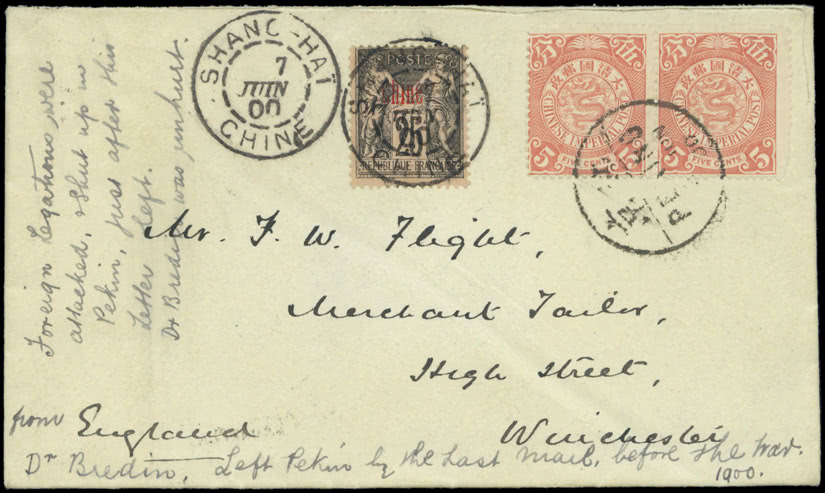 SHANG-HAI
7
JUIN
00
CHINE
POSTE
CHINE
25
REPUBLIQUE FRANÇAISE
大清國郵政
伍 分
CHINESE IMPERIAL POST
5 FIVE CENTS 5
大清國郵政
伍 分
CHINESE IMPERIAL POST
5 FIVE CENTS 5
Foreign Legations were
attacked, & shut up in
Pekin, just after this
Letter left.
Dr Bredin was unhurt.
Mr. F. W. Flight,
Merchant Tailor,
High Street,
Winchester
England
from
Dr Bredin. Left Pekin by the Last mail, before the War.
1900.